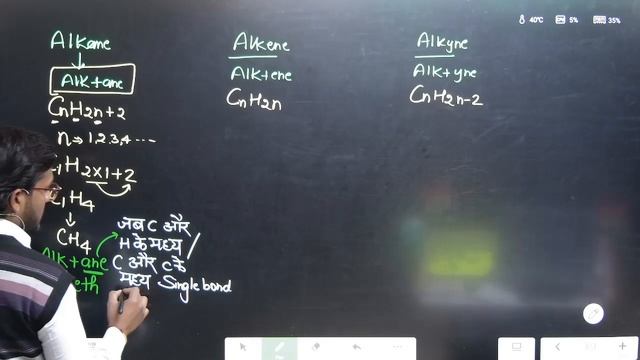 40℃ 5% 35%
Alkane
Alk+ane
CnH2n+2
n→1,2,3,4----
H2x1+2
H4
CH4
Alk+ane
eth
जब C और
H के मध्य /
C और C के
मध्य Single bond
Alkene
Alk+ene
CnH2n
Alkyne
Alk+yne
CnH2n-2